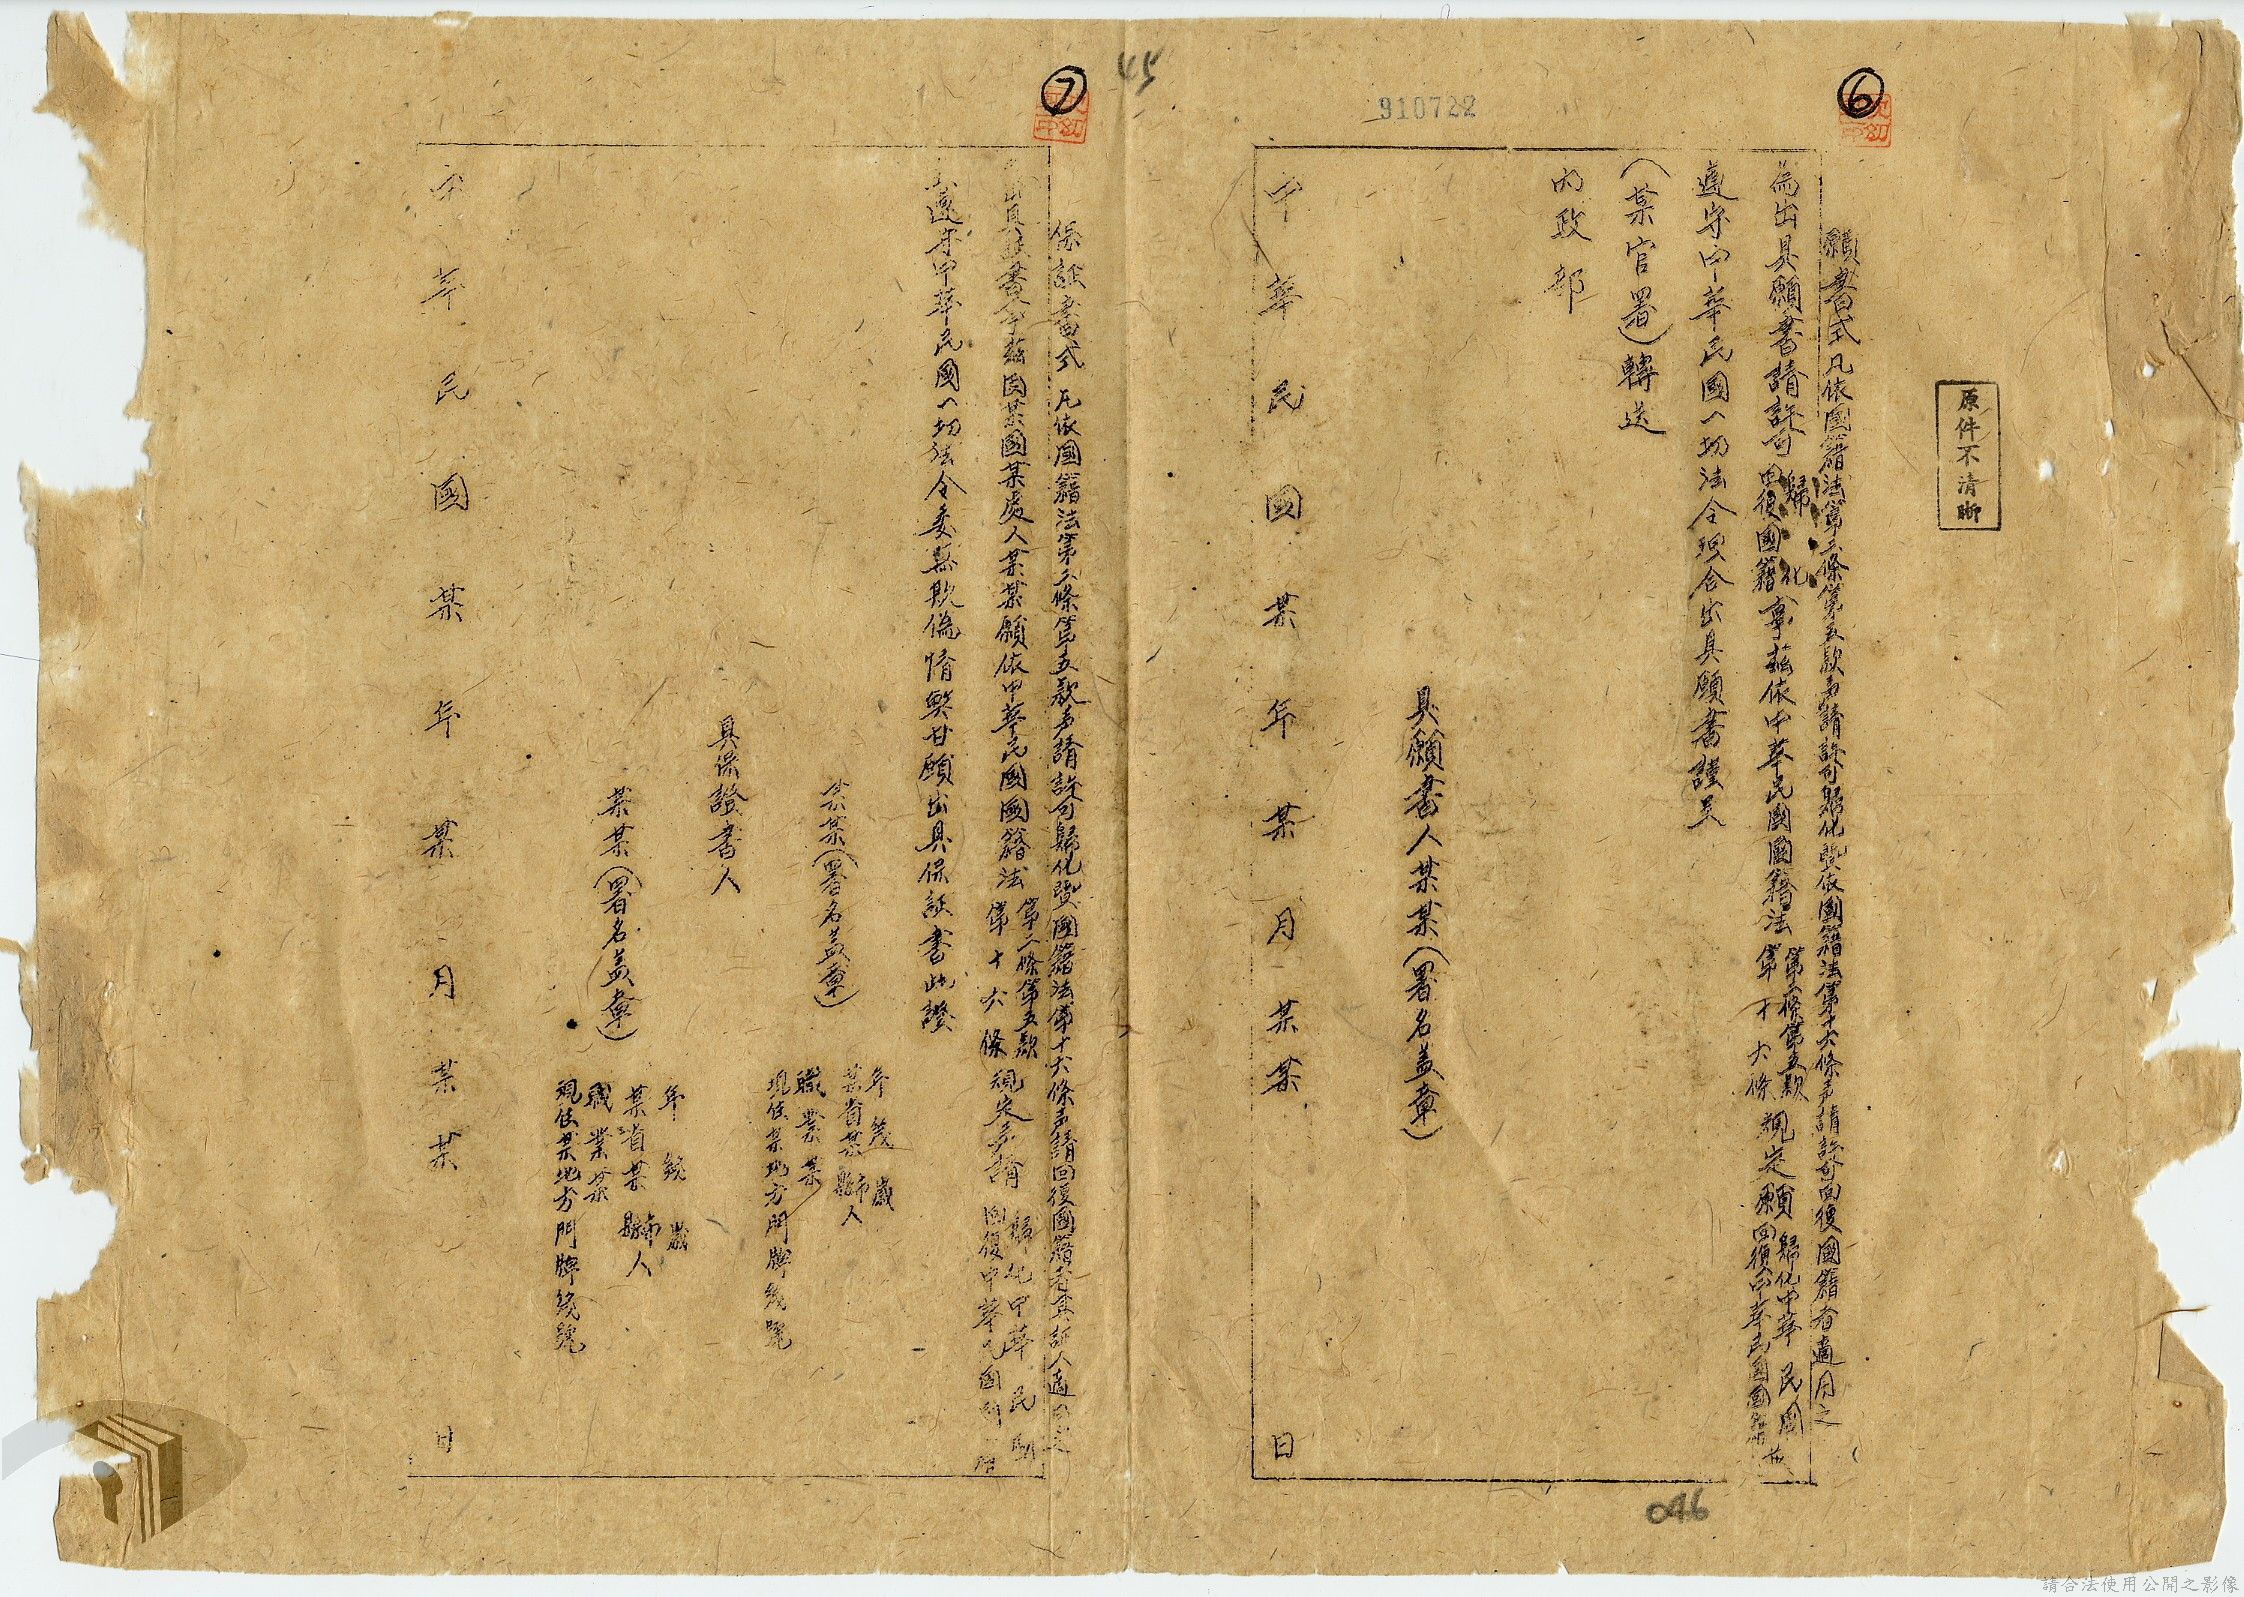 原件不清晰
⑥
910722
願書式 凡依國籍法第二條第五款声請許可歸化暨依國籍法第十六條声請許可回復國籍者適用之
為出具願書請許可歸化回復國籍事茲依中華民國國籍法第二條第五款第十六條規定願歸化中華民國回復中華民國國籍並
遵守中華民國一切法令理合出具願書謹呈
(某官署)轉送
內政部
具願書人某某(署名蓋章)
中華民國某年某月某某日
046
45
⑦
保証書式 凡依國籍法第二條第五款声請許可歸化暨國籍法第十六條声請回復國籍者其証人適用之
出具 書人茲因某國某處人某某願依中華民國國籍法第二條第五款第十六條規定声請歸化中華民國回復中華民國國籍
遵守中華民國一切法令委無欺偽情弊甘願出具保証書此證
某某(署名蓋章)
年幾歲
某省某縣市人
職業某
現住某地方門牌幾號
具保證書人
某某(署名蓋章)
年幾歲
某省某縣市人
職業某
現住某地方門牌幾號
中華民國某年某月某某日
請合法使用公開之影像